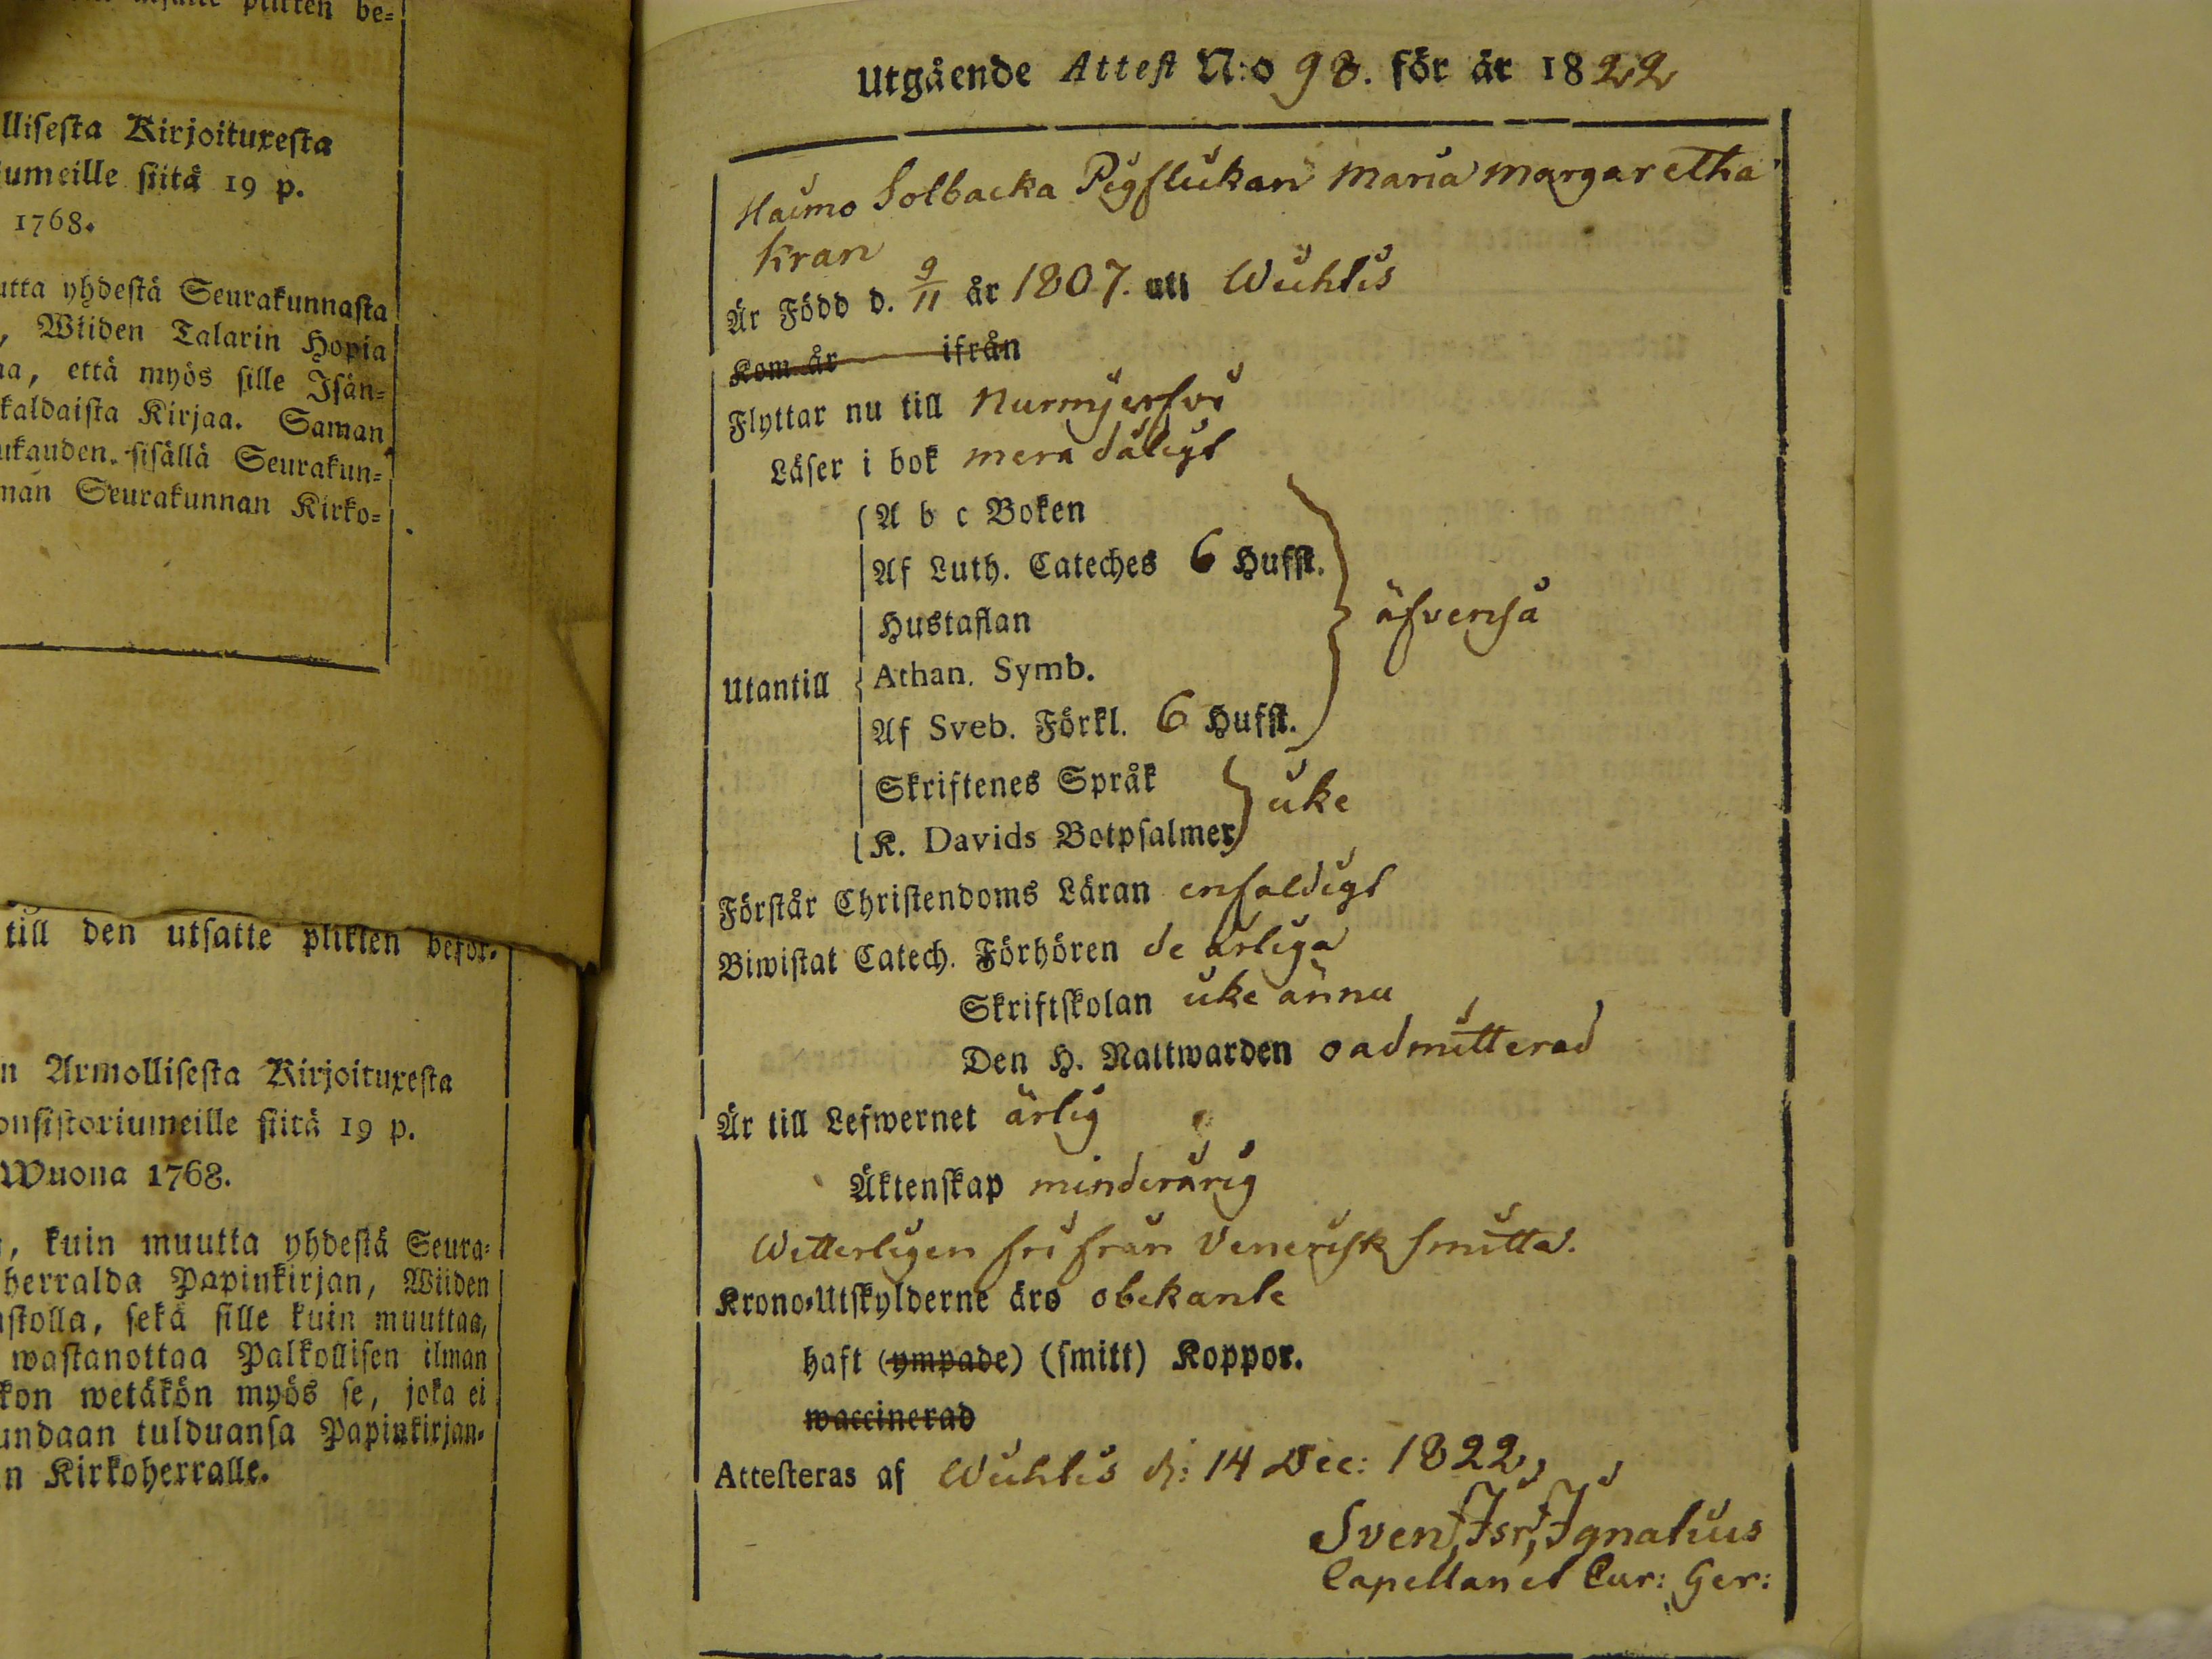 be=
lliſeſta Kirjoituxeſta
umeille ſiitä 19 p.
1768.
utta yhdeſtä Seurakunnaſta
, Wiiden Talarin Hopia
na, että myös ſille Iſän=
kaldaiſta Kirjaa. Saman
ukauden ſiſällä Seurakun=
man Seurakunnan Kirko=
till den utſatte plikten befor.
n Armolliſeſta Kirjoituxeſta
onſiſtoriumeille ſiitä 19 p.
Wuona 1768.
, kuin muutta yhdeſtä Seura=
herralda Papinkirjan, Wiiden
ſtolla, ſekä ſille kuin muuttaa,
waſtanottaa Palkolliſen ilman
kon wetäkön myös ſe, joka ei
undaan tulduanſa Papinkirjan=
n Kirkoherralle.
Utgående Atteſt N:o 98. för år 1822
Haimo Solbacka Pigflickan Maria Margaretha
Kran
Är Född d. 9/11 år 1807. uti Wichtis
Kom år ifrån
Flyttar nu till Nurmijerfvi
Läſer i bok mera dåligt
A b c Boken
Af Luth. Cateches 6 Hufſt.
Hustaflan äfvenſå
Utantill Athan. Symb.
Af Sveb. Förkl. 6 Hufſt.
Skriftenes Språk
icke
K. Davids Botpſalmer
Förſtår Chriſtendoms Läran enfaldigt
Biwiſtat Catech. Förhören de årliga
Skriftſkolan icke ännu
Den H. Nattwarden oadmitterad
Är till Lefwernet ärlig
Äktenſkap minderårig
Witterligen fri från Veneriſk ſmitta.
Krono=Utſkylderne äro obekante
haft (ympade) (ſmitt) Koppor.
waccinerad
Atteſteras af Wichtis d: 14 Dec: 1822,
Sven Isr, Ignatius
Capellan et Cur: Ger: